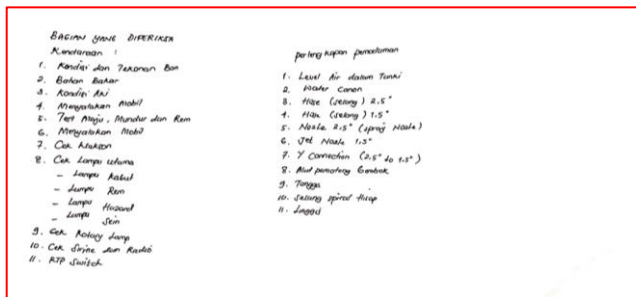 BAGIAN YANG DIPERIKSA
Kendaraan :
1. Kondisi dan Tekanan Ban
2. Bahan Bakar
3. Kondisi Aki
4. Menyalakan Mobil
5. Test Maju, Mundur dan Rem
6. Menyalakan Mobil
7. Cek Klakson
8. Cek Lampu utama
- Lampu Kabut
- Lampu Rem
- Lampu Hazard
- Lampu Sein
9. Cek Rotary Lamp
10. Cek Sirine dan Radio
11. PTP Switch
perlengkapan pemadaman
1. Level Air dalam Tanki
2. Water Canon
3. Hose (selang) 2.5"
4. Hose (selang) 1.5"
5. Nozle 2.5" (spray Nozle)
6. Jet Nozle 1.5"
7. Y Connection (2.5" to 1.5")
8. Alat pemotong Gembok
9. Tangga
10. Selang spiral Hisap
11. Linggis